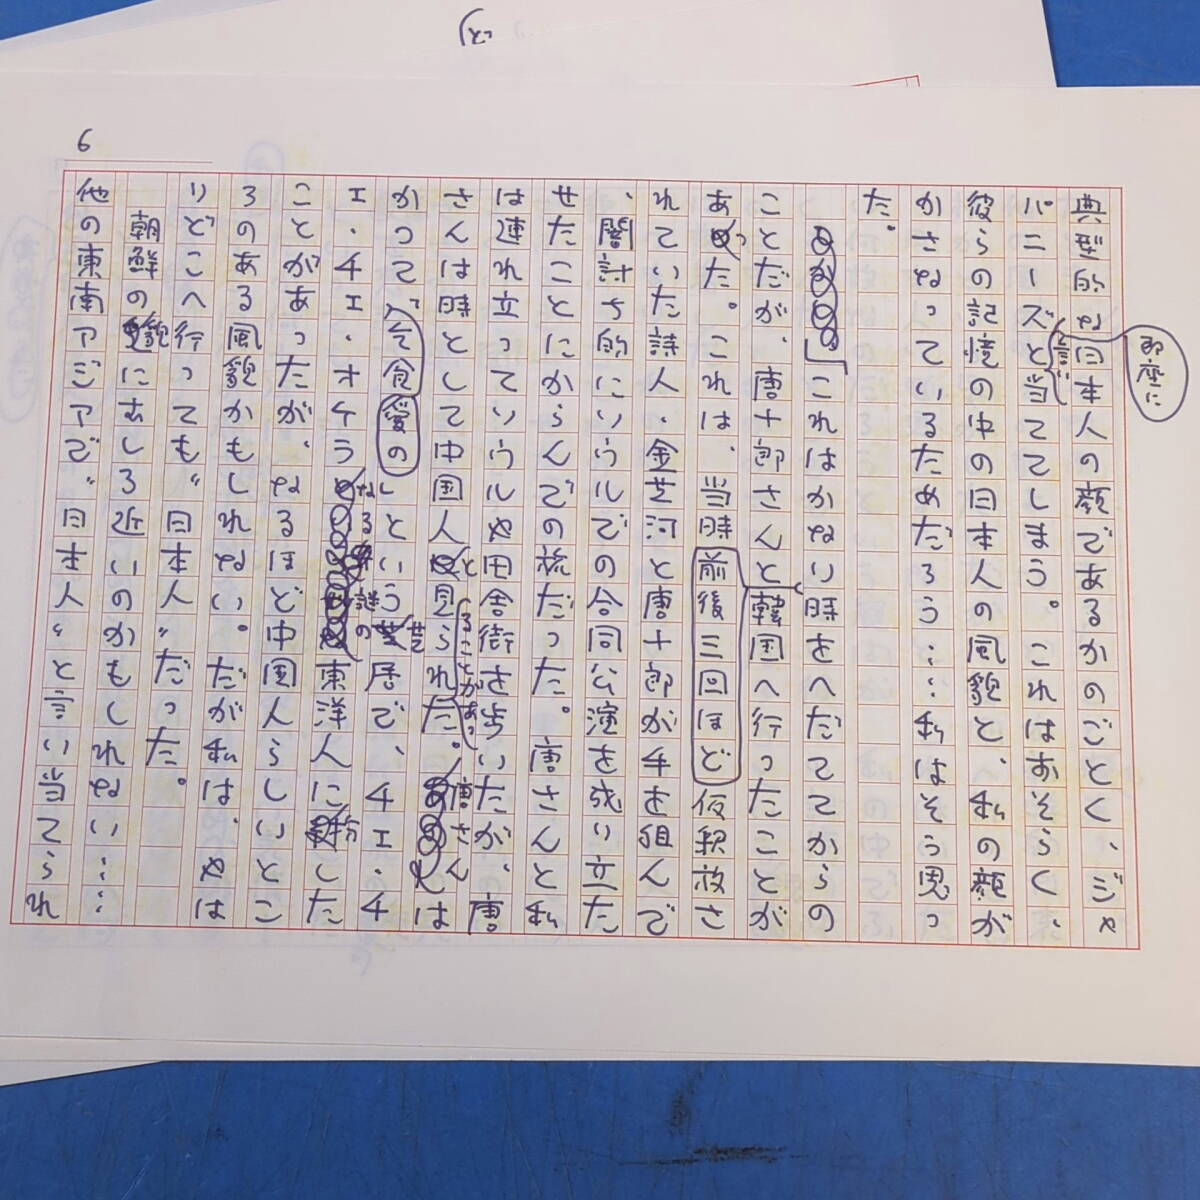 6
典型的な日本人の顔であるかのごとく、ジャ
パニーズと言い当ててしまう。これはおそらく、
即座に
彼らの記憶の中の日本人の風貌と、私の顔が
かさなっているためだろう……私はそう思っ
た。
これはかなり時をへだててからの
ことだが、唐十郎さんと韓国へ行ったことが
あった。これは、当時前後三回ほど仮釈放さ
れていた詩人・金芝河と唐十郎が手を組んで
、闇討ち的にソウルでの合同公演を成り立た
せたことにからんでの旅だった。唐さんと私
は連れ立ってソウルや田舎街を歩いたが、唐
さんは時として中国人と見られることがあった。唐さんは
かつて『乞食愛の』という芝居で、チェ・チ
ェ・チェ・オケラなる謎の東洋人に扮した
ことがあったが、なるほど中国人らしいとこ
ろのある風貌かもしれない。だが私は、やは
りどこへ行っても〝日本人〟だった。
朝鮮の貌にむしろ近いのかもしれない……
他の東南アジアで〝日本人〟と言い当てられ